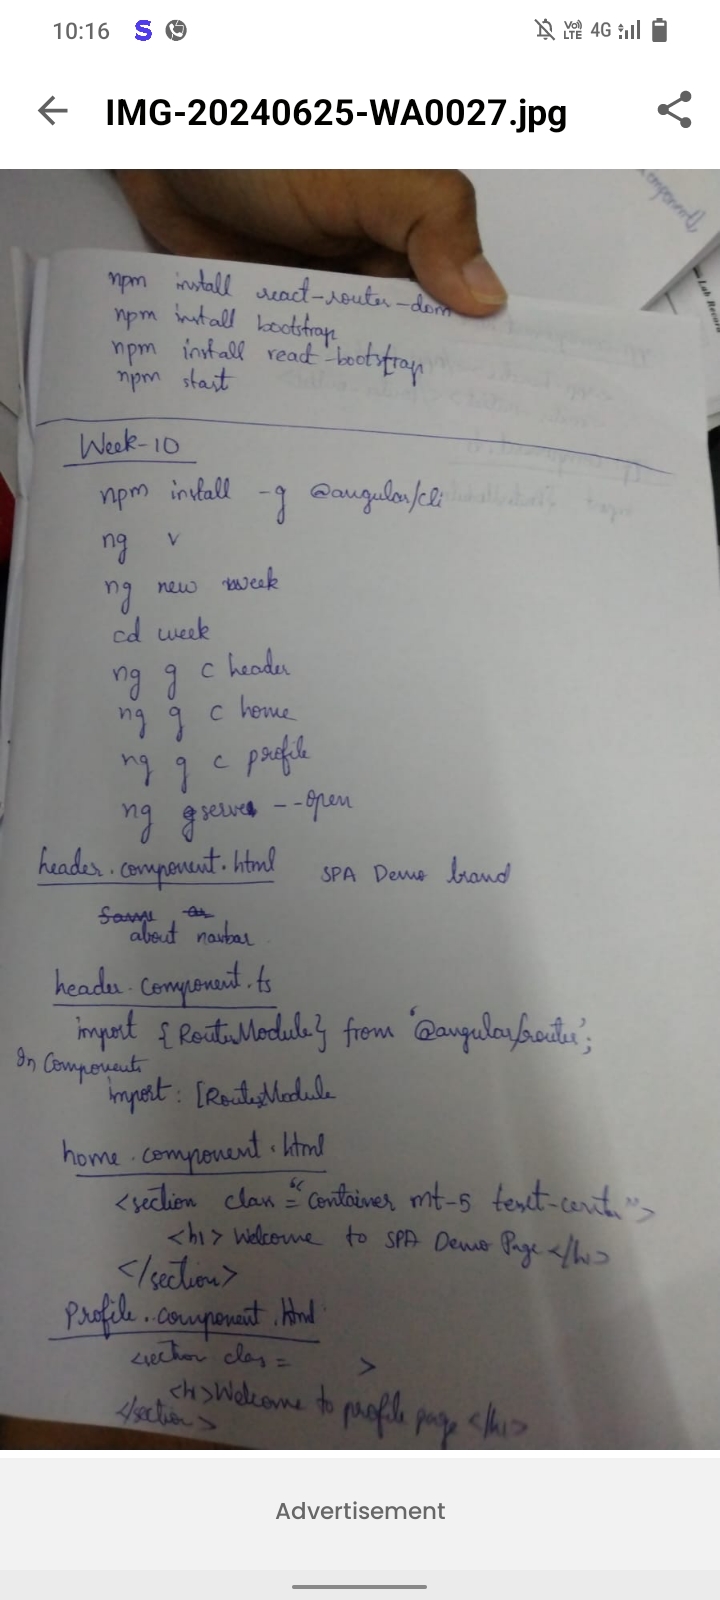 10:16 S Vo) LTE 4G
IMG-20240625-WA0027.jpg
component
Lab Record
npm install react-router-dom
npm install bootstrap
npm install react-bootstrap
npm start
Week-10
npm install -g @angular/cli
ng v
ng new week
cd week
ng g c header
ng g c home
ng g c profile
ng serve --open
header.component.html SPA Demo brand
Same as
about navbar
header.component.ts
import {RouterModule} from '@angular/router';
In Components
import: [RouterModule
home.component.html
<section class="container mt-5 text-center">
<h1> Welcome to SPA Demo Page </h1>
</section>
Profile.component.html
<section class= >
<h1>Welcome to profile page </h1>
</section>
Advertisement